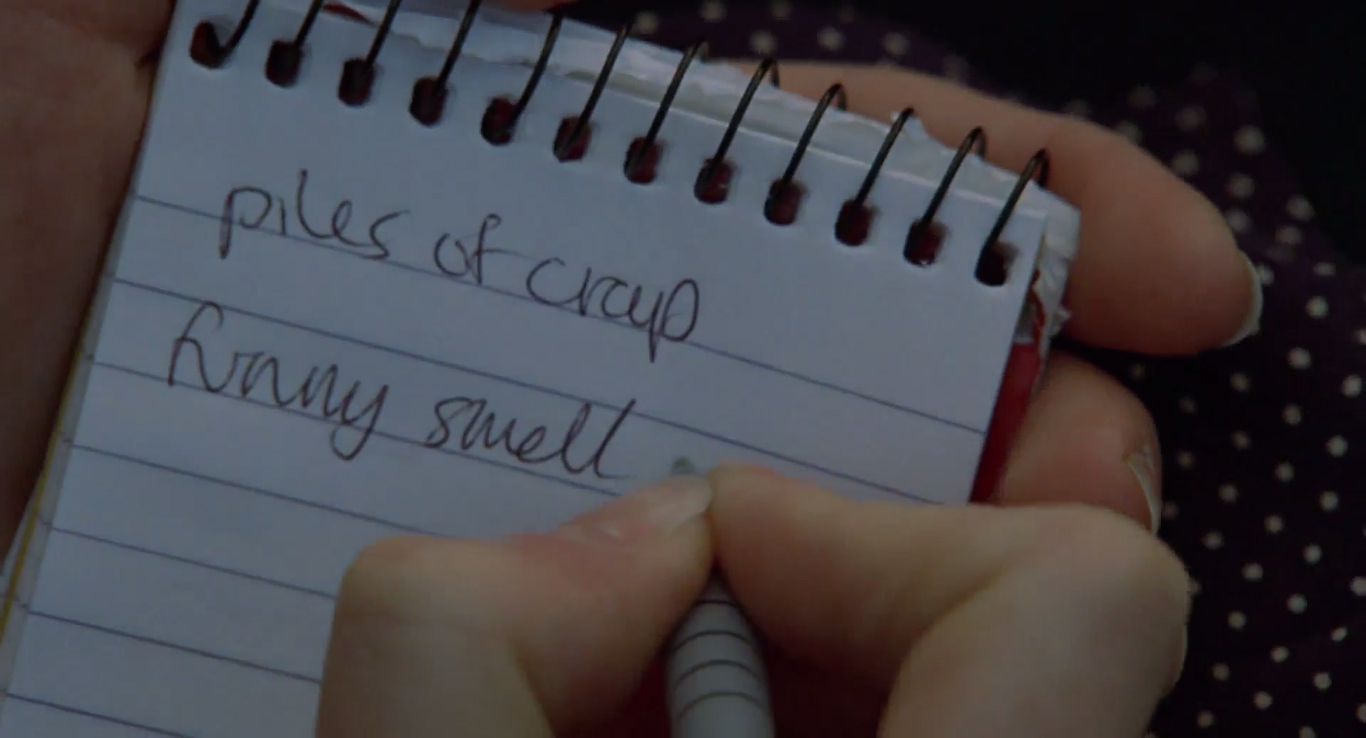 piles of crap
funny smell